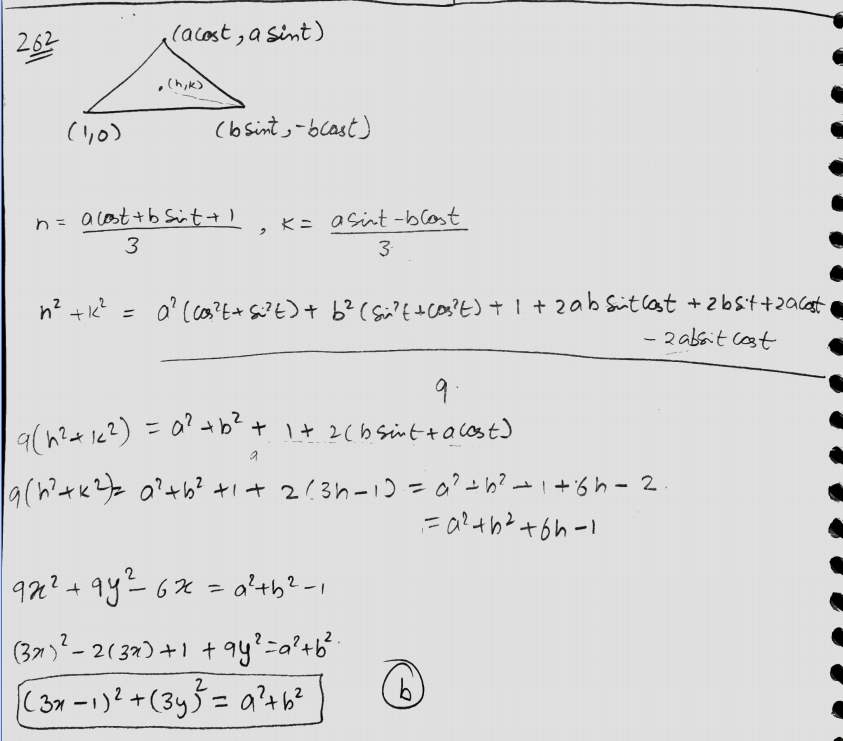 262
(acost, a sint)
.(h,k)
(1,0) (b sint, -bcost)
h = acost+b sint+1 / 3 , k = asint-bcost / 3
h² + k² = a²(cos²t+si²t) + b²(sin²t+cos²t) + 1 + 2ab sint cost + 2bsit+2acost
- 2absit cost
9.
9(h²+k²) = a²+b² + 1+ 2(b sint+acost)
9(h²+k²)= a²+b²+1+ 2(3h-1) = a²+b²+1+6h-2.
= a²+b²+6h-1
9x²+9y²-6x = a²+b²-1
(3x)²-2(3x)+1+9y²=a²+b².
(3x-1)²+(3y)² = a²+b² b